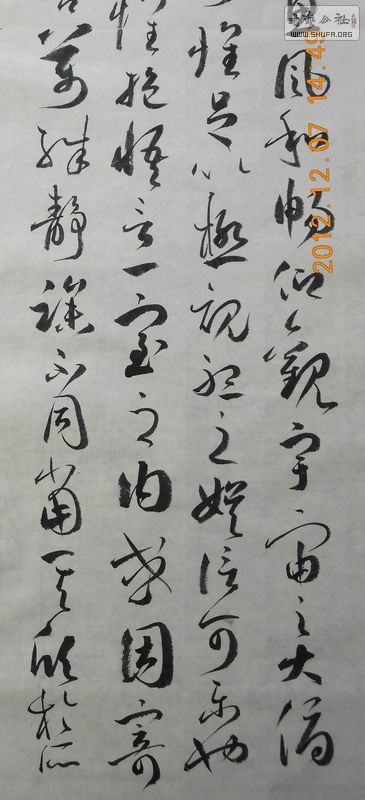 風和暢仰觀宇宙之大俯
懷足以極視聽之娛信可樂也
懷抱悟言一室之内或因寄
萬殊静躁不同當其欣於所
WWW.SHUFA.ORG
2012.12.07 14:49